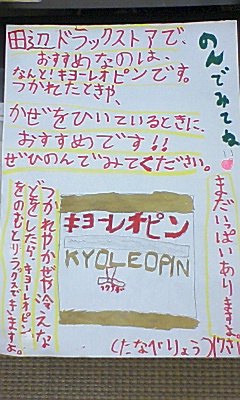 田辺ドラックストアで、
おすすめなのは、
なんと！キヨーレオピンです。
つかれたときや、
かぜをひいているときに、
おすすめです!!
ぜひのんでみてください。
のんでみてね
まだいっぱいありますよ。
キヨーレオピン
KYOLEOPIN
つかれやかぜや冷えな
どをしたら、キヨーレオピン
をのむとリラックスできますよ。
(たなべりょう)